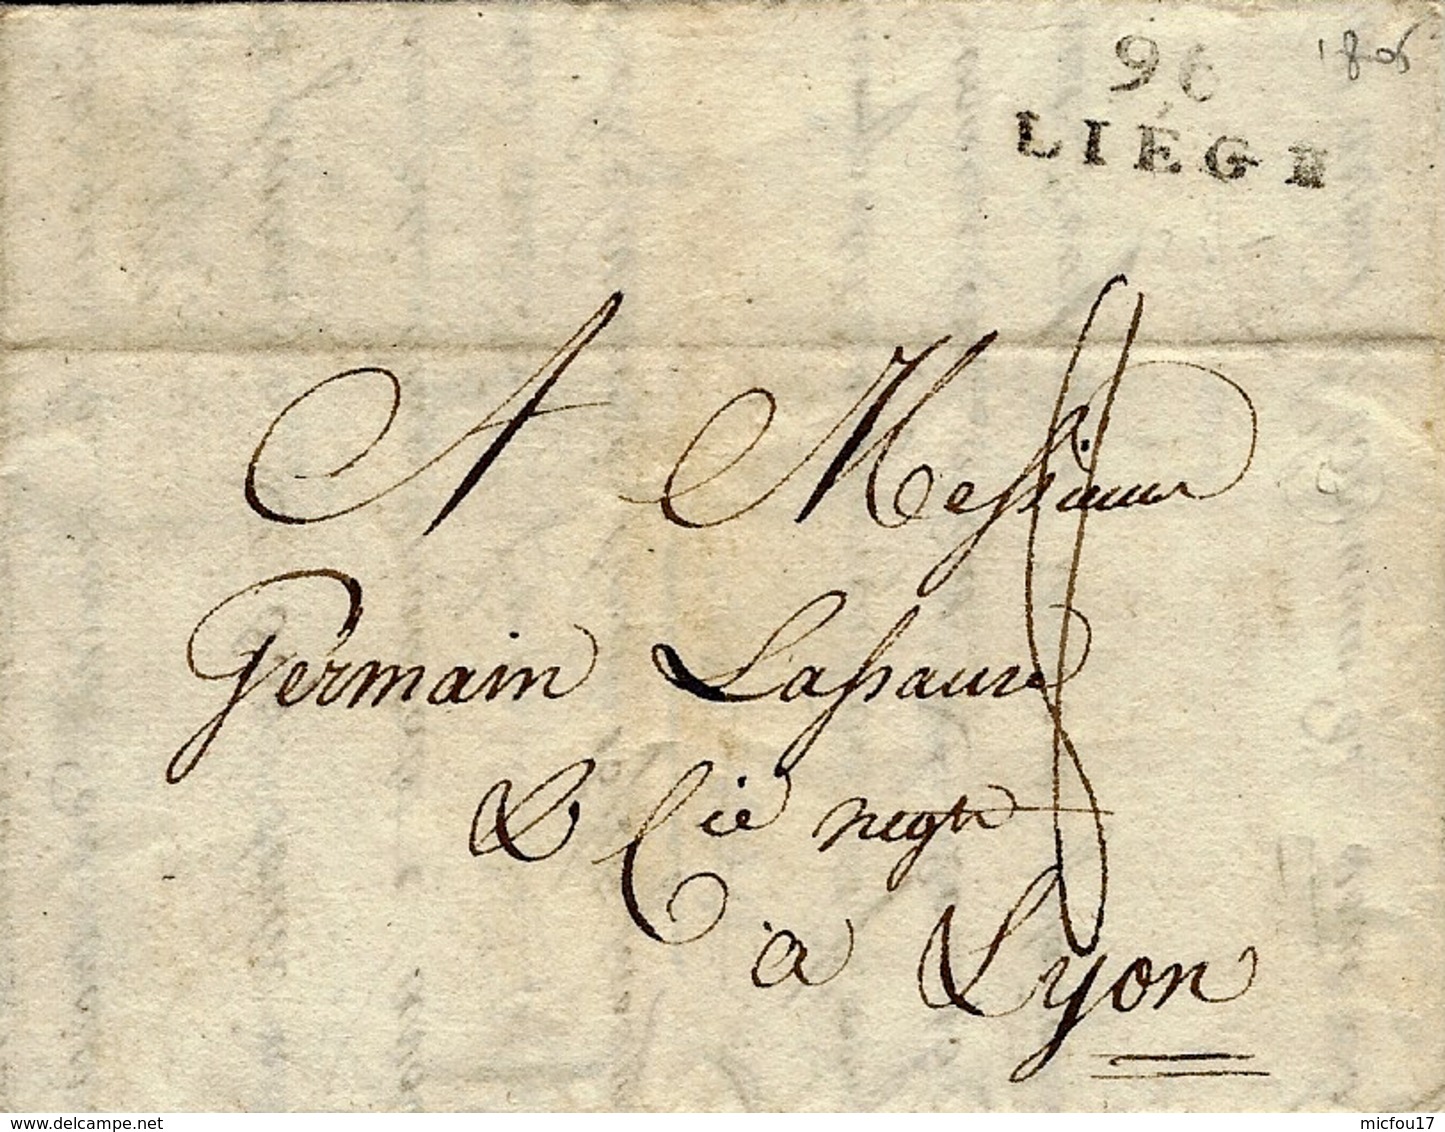 96
LIÉGE
1806
A Messieurs
Germain Lassausse
& Cie negts
a Lyon
delcampe.net
micfou17